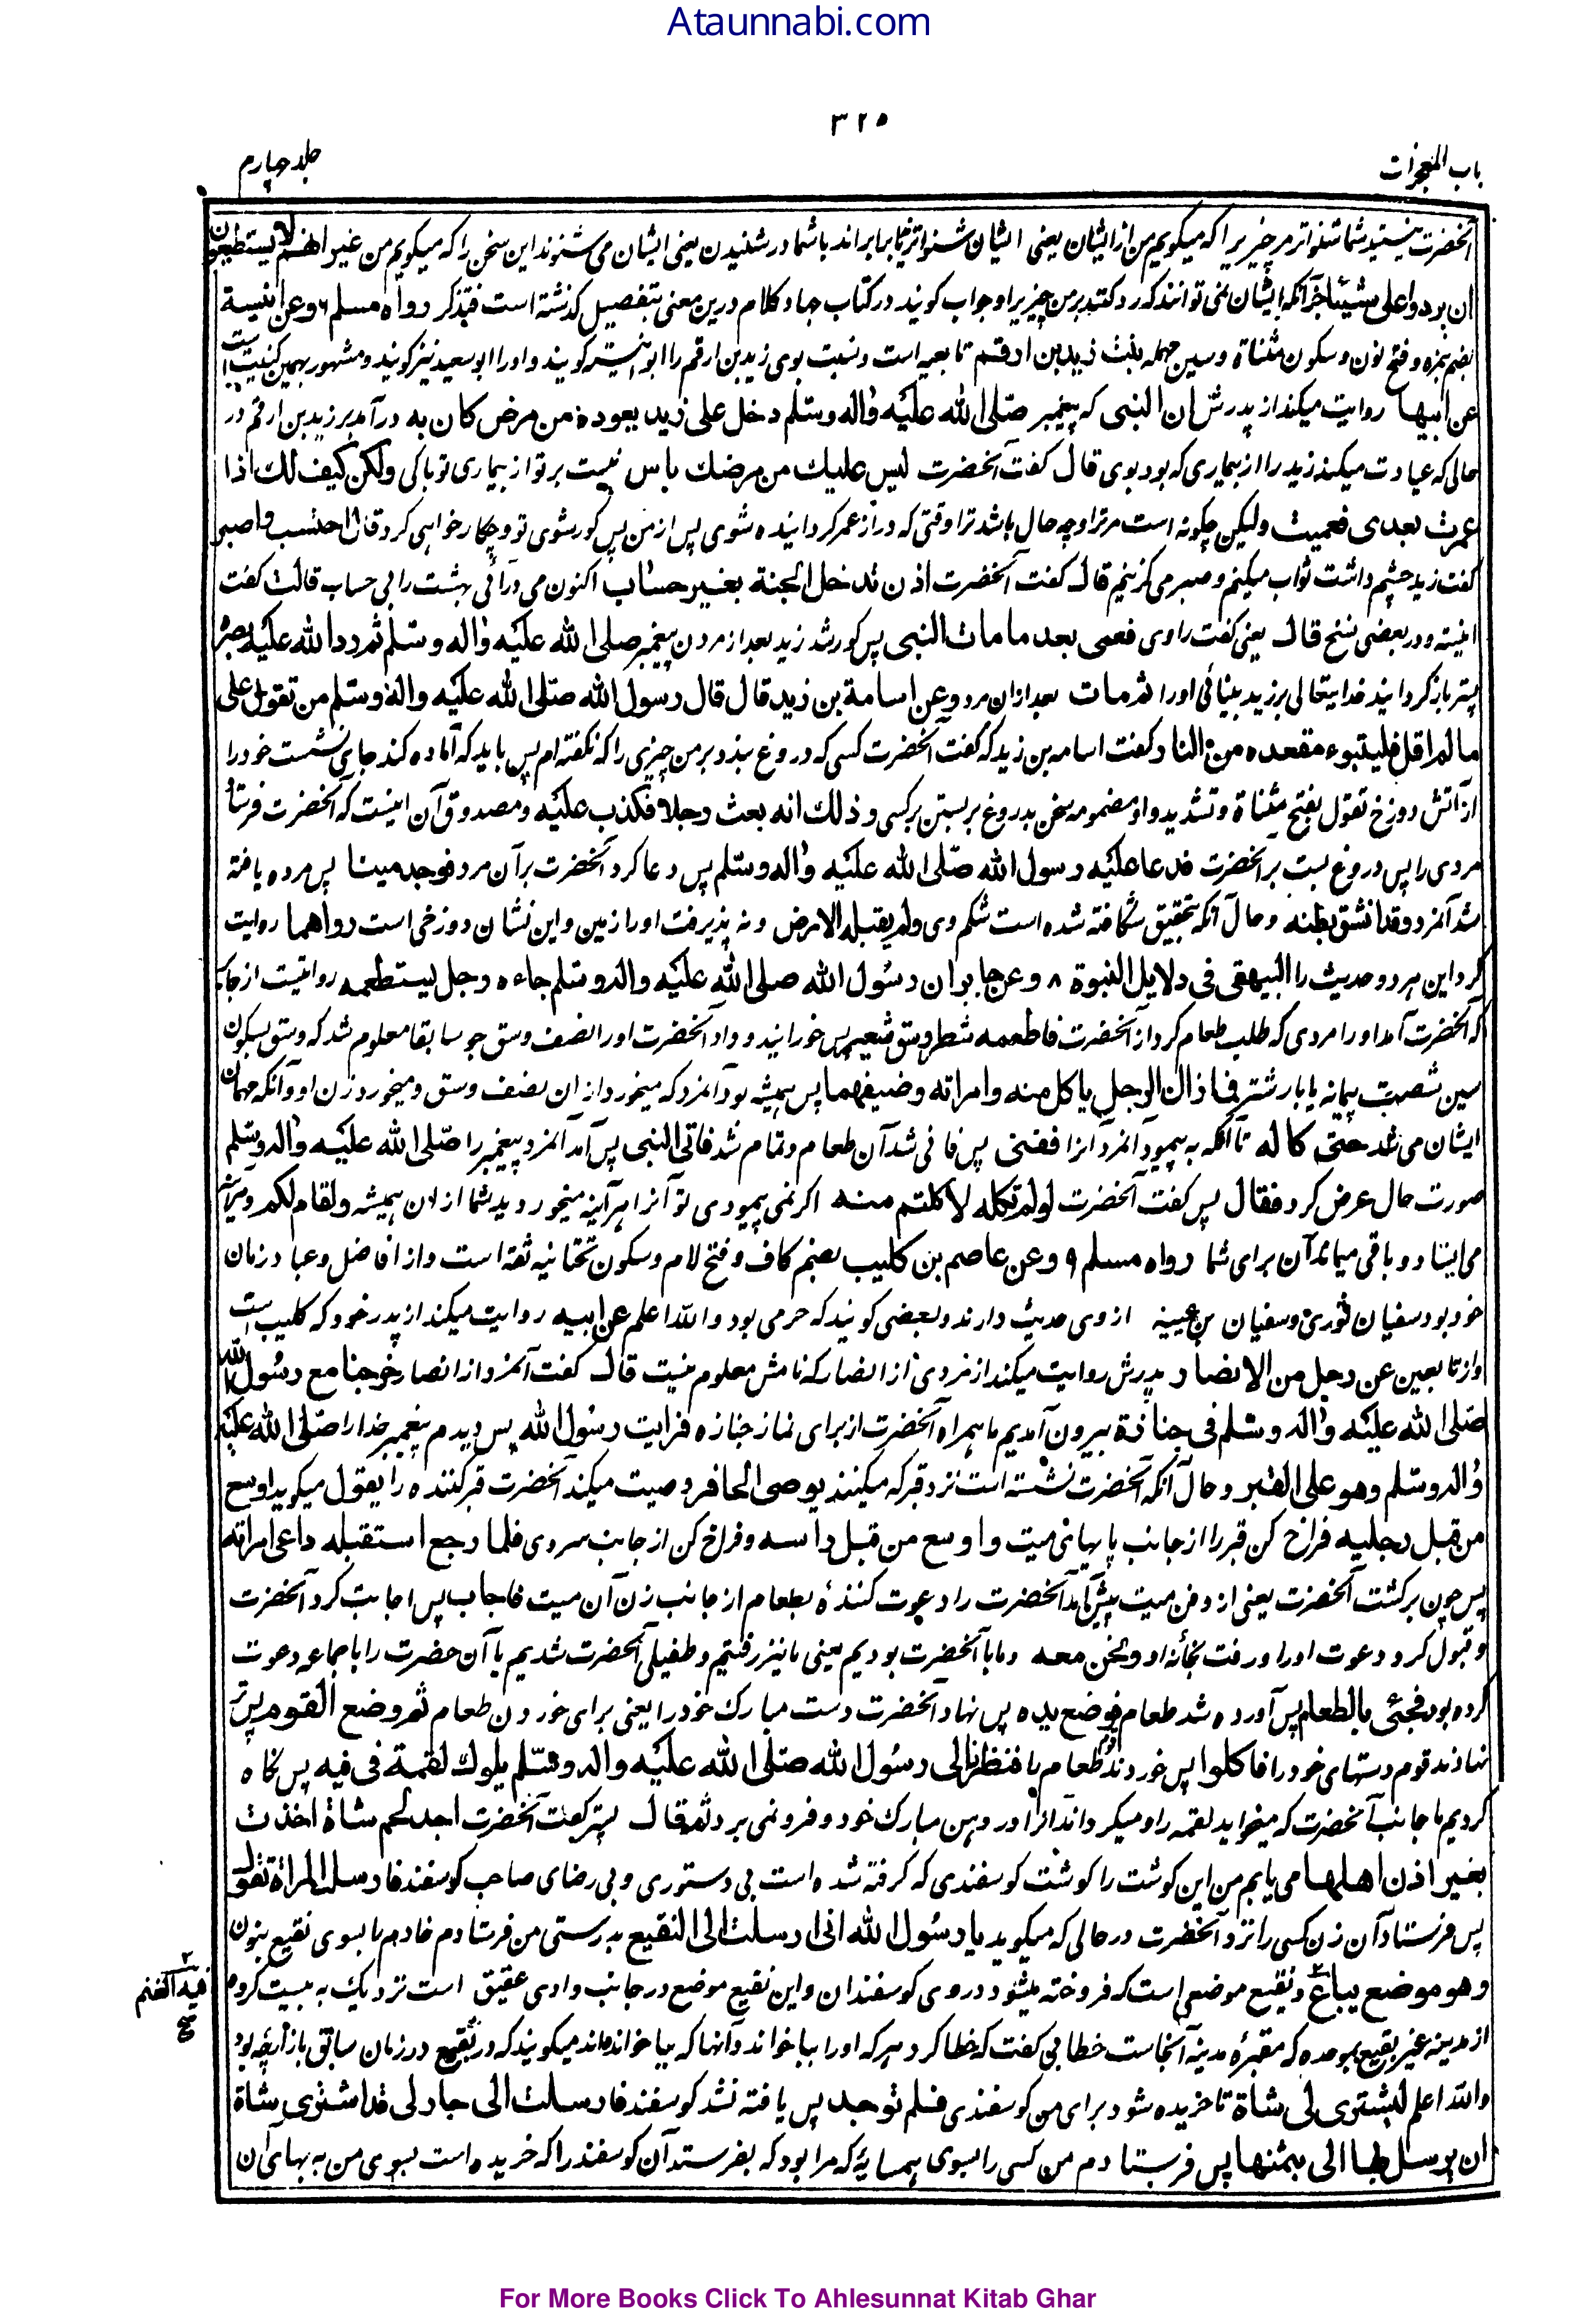 Ataunnabi.com
۳۲۵
باب المعجزات
جلد چهارم
آنحضرت نیستید شما شنواتر مر چیزیرا که میگویم من از ایشان یعنی ایشان شنواتر یا برابراند با شما در شنیدن یعنی ایشان می شنوند این سخن را که میگویم من غیر انهم لا یستطیعون
ان یردوا علی شیئا جز آنکه ایشان نمی توانند که رد کنند بر من چیزیرا و جواب گویند در کتاب جهاد کلام درین معنی بتفصیل گذشته است فتذکر رواه مسلم ۶ وعن انیسة
بضم همزه و فتح نون و سکون مثناة و سین مهمله بنت زید بن ارقم تابعیه است و نسبت بوی زید بن ارقم را ابو انیسه گویند و او را ابو سعید نیز گویند و مشهور بهمین کنیت است
عن ابیها روایت میکند از پدرش ان النبی که پیغمبر صلی الله علیه واله وسلم دخل علی زید یعوده من مرض کان به در آمد بر زید بن ارقم در
حالی که عیادت میکند زید را از بیماری که بود بوی قال گفت آنحضرت لیس علیك من مرضك باس نیست بر تو از بیماری تو باکی ولکن کیف لك اذا
عمرت بعدی فعمیت ولیکن چگونه است مر ترا و چه حال باشد ترا وقتی که دراز عمر گردانیده شوی پس از من پس کور شوی تو و چکار خواهی کرد قال احتسب واصبر
گفت زید چشم داشت ثواب میکنم و صبر می گزینم قال گفت آنحضرت اذن تدخل الجنة بغیر حساب اکنون می درائی بهشت را بی حساب قالت گفت
انیسه و در بعضی نسخ قال یعنی گفت راوی فعمی بعد ما مات النبی پس کور شد زید بعد از مردن پیغمبر صلی الله علیه واله وسلم ثم رد الله علیه بصره
پستر باز گردانید خدایتعالی بر زید بینائی او را ثم مات بعد ازان مرد وعن اسامة بن زید قال قال رسول الله صلی الله علیه واله وسلم من تقول علی
ما لم اقل فلیتبوء مقعده من النار گفت اسامه بن زید که گفت آنحضرت کسی که دروغ بندد بر من چیزی را که نگفته ام پس باید که آماده کند جای نشست خود را
از آتش دوزخ تقول بفتح مثناة و تشدید واو مضمومه سخن بدروغ بر بستن بر کسی وذلك انه بعث رجلا فکذب علیه و مصدوق آن اینست که آنحضرت فرستاد
مردی را پس دروغ بست بر آنحضرت فدعا علیه رسول الله صلی الله علیه واله وسلم پس دعا کرد آنحضرت بر آن مرد فوجد میتا پس مرده یافته
شد آنمرد وقد انشق بطنه و حال آنکه بتحقیق شگافته شده است شکم وی ولم یقبله الارض و نه پذیرفت او را زمین و این نشان دوزخی است رواهما روایت
کرد این هر دو حدیث را البیهقی فی دلایل النبوة ۸ وعن جابر ان رسول الله صلی الله علیه واله وسلم جاءه رجل یستطعمه روایتست از جابر
که آنحضرت آمد او را مردی که طلب طعام کرد از آنحضرت فاطعمه شطر وسق شعیر پس خورانید و داد آنحضرت او را نصف وسق جو سابقا معلوم شد که وسق بسکون
سین شصت پیمانه یا بار شتر فما زال الرجل یاکل منه وامراته وضیفهما پس همیشه بود آنمرد که میخورد ازان نصف وسق و میخورد زن او و آنکه مهمان
ایشان می شد حتی کاله تا آنکه به پیمود آنمرد آنرا ففنی پس فانی شد آن طعام و تمام شد فاتی النبی پس آمد آنمرد پیغمبر را صلی الله علیه واله وسلم
صورت حال عرض کرد فقال پس گفت آنحضرت لو لم تکله لاکلتم منه اگر نمی پیمودی تو آنرا هرآینه میخوردید شما ازان همیشه ولقام لکم و هرآینه
می ایستاد و باقی میماند آن برای شما رواه مسلم ۹ وعن عاصم بن کلیب بضم کاف و فتح لام و سکون تحتانیه ثقه است و از افاضل و عباد زمان
خود بود سفیان ثوری و سفیان بن عیینه از وی حدیث دارند و بعضی گویند که حرمی بود والله اعلم عن ابیه روایت میکند از پدر خود که کلیب است
و از تابعین عن رجل من الانصار پدرش روایت میکند از مردی از انصار که نامش معلوم نیست قال گفت آنمرد از انصار خرجنا مع رسول الله
صلی الله علیه واله وسلم فی جنازة بیرون آمدیم ما همراه آنحضرت از برای نماز جنازه فرایت رسول الله پس دیدم پیغمبر خدا را صلی الله علیه
واله وسلم وهو علی القبر و حال آنکه آنحضرت نشسته است نزد قبر که میکنند یوصی الحافر وصیت میکند آنحضرت قبر کننده را یقول میگوید اوسع
من قبل رجلیه فراخ کن قبر را از جانب پایهای میت واوسع من قبل راسه و فراخ کن از جانب سر وی فلما رجع استقبله داعی امراته
پس چون برگشت آنحضرت یعنی از دفن میت پیش آمد آنحضرت را دعوت کننده بطعام از جانب زن آن میت فاجاب پس اجابت کرد آنحضرت
و قبول کرد دعوت او را و رفت بخانه او ونحن معه و ما با آنحضرت بودیم یعنی ما نیز رفتیم و طفیلی آنحضرت شدیم یا آن حضرت را با جماعه دعوت
کرده بود فجئی بالطعام پس آورده شد طعام فوضع یده پس نهاد آنحضرت دست مبارک خود را یعنی برای خوردن طعام ثم وضع القوم پستر
نهادند قوم دستهای خود را فاکلوا پس خوردند قوم طعام را فنظرنا الی رسول الله صلی الله علیه واله وسلم یلوك لقمة فی فیه پس نگاه
کردیم ما جانب آنحضرت که میخاید لقمه را و میگرداند آنرا در دهن مبارک خود و فرو نمی برد ثم قال پستر گفت آنحضرت اجد لحم شاة اخذت
بغیر اذن اهلها می یابم من این گوشت را گوشت گوسفندی که گرفته شده است بی دستوری و بی رضای صاحب گوسفند فارسلت المراة تقول
پس فرستاد آن زن کسی را نزد آنحضرت در حالی که میگوید یا رسول الله انی ارسلت الی النقیع بدرستی من فرستادم خادم را بسوی نقیع بنون
وهو موضع یباع و نقیع موضعی است که فروخته میشود در وی گوسفندان و این نقیع موضع در جانب وادی عقیق است نزدیک به بیست کروه
فیه الغنم
صح
از مدینه غیر بقیع بموحده که مقبره مدینه آنجاست خطابی گفت که خطا کرد هر که او را ببا خواند و آنها که ببا خوانده اند میگویند که در بقیع در زمان سابق بازارچه بود
والله اعلم لیشتری لی شاة تا خریده شود برای من گوسفندی فلم توجد پس یافته نشد گوسفند فارسلت الی جار لی قد اشتری شاة
ان یرسل بها الی بثمنها پس فرستادم من کسی را بسوی همسایه که مرا بود که بفرستد آن گوسفند را که خریده است بسوی من به بهای آن
For More Books Click To Ahlesunnat Kitab Ghar